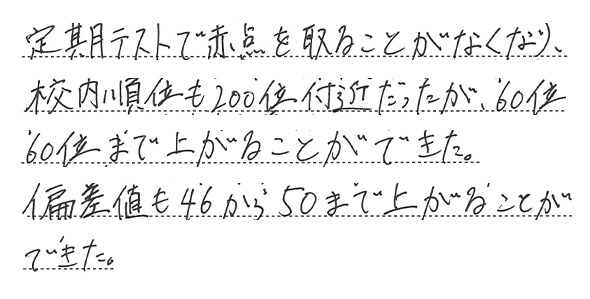 定期テストで赤点を取ることがなくなり、
校内順位も200位付近だったが、60位
60位まで上がることができた。
偏差値も46から50まで上がることが
できた。